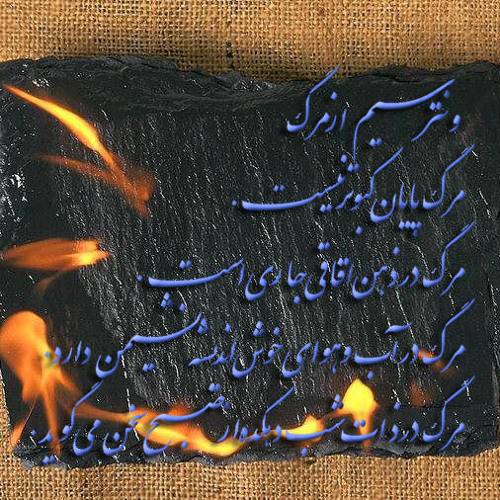 و نترسیم از مرگ
مرگ پایان کبوتر نیست.
مرگ در ذهن اقاقی جاری است.
مرگ در آب و هوای خوش اندیشه نشیمن دارد.
مرگ در ذات شب دهکده از صبح سخن می گوید.